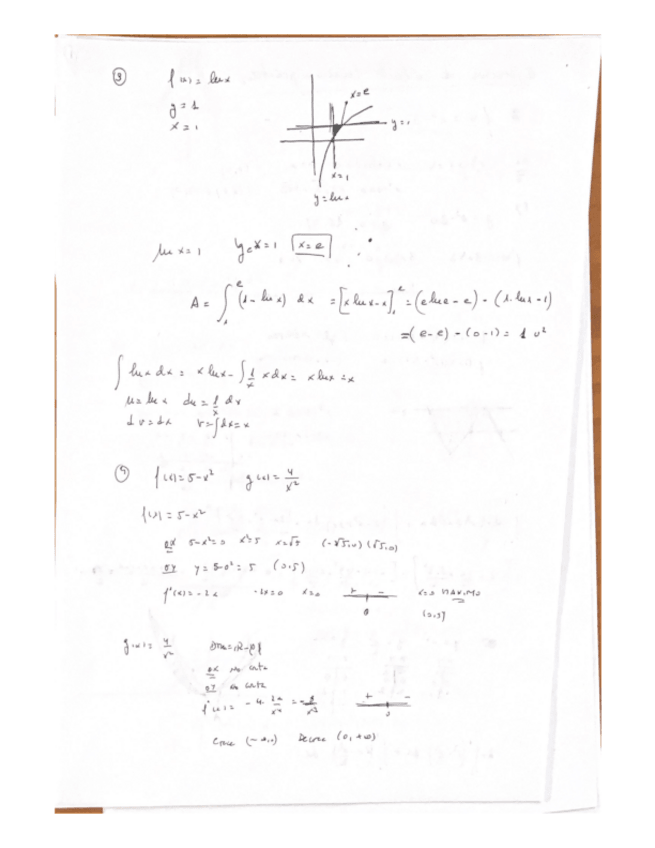 ③ f(x) = ln x
y = 1
x = 1
x=e
y=1
x=1
y=ln x
ln x = 1
x=e
A = ∫₁ᵉ (1 - ln x) dx = [x ln x - x]₁ᵉ = (e ln e - e) - (1·ln 1 - 1)
= (e - e) - (0 - 1) = 1 u²
∫ ln x dx = x ln x - ∫ 1/x x dx = x ln x - x
u = ln x du = 1/x dx
dv = dx v = ∫dx = x
f(x) = 5 - x² g(x) = 4/x²
f(x) = 5 - x²
OX 5-x²=0 x²=5 x=√5 (-√5,0) (√5,0)
OY y = 5-0² = 5 (0,5)
f'(x) = -2x -2x=0 x=0 + - x=0 MAXIMO
0 (0,5)
g(x) = 4/x² Dom = R-{0}
OX no corta
OY no corta
+ -
0
Crece (-∞,0) Decrece (0,+∞)